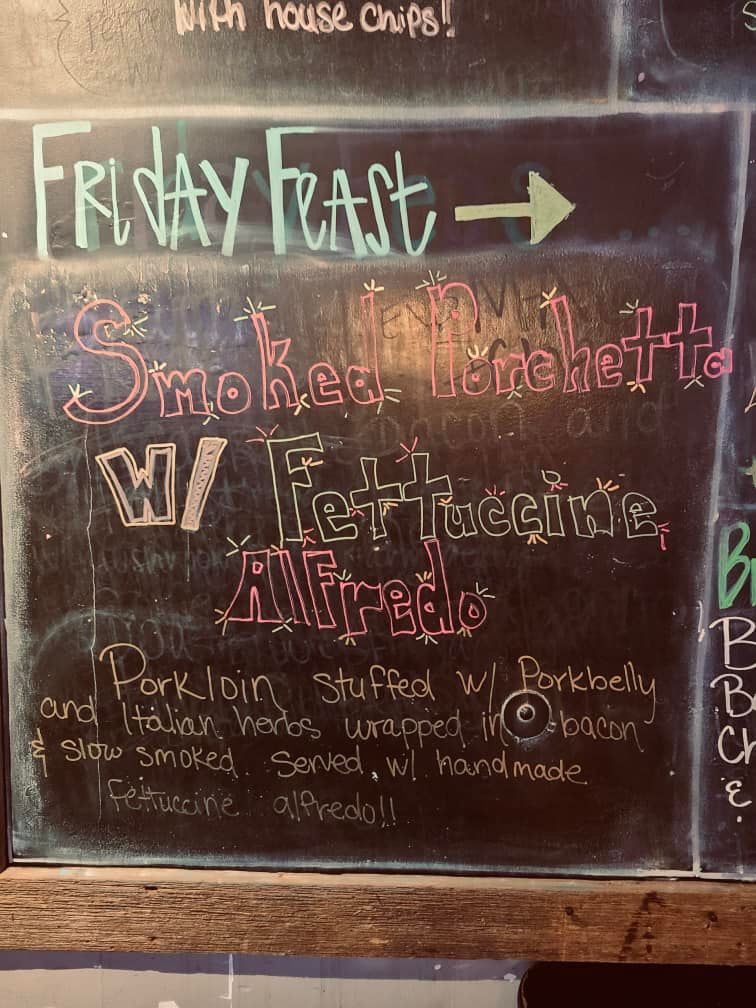 with house chips!!
Friday Feast →
Smoked Porchetta
w/ Fettuccine
Alfredo
Porkloin stuffed w/ Porkbelly
and Italian herbs wrapped in bacon
& slow smoked. Served w/ handmade
fettuccine alfredo!!